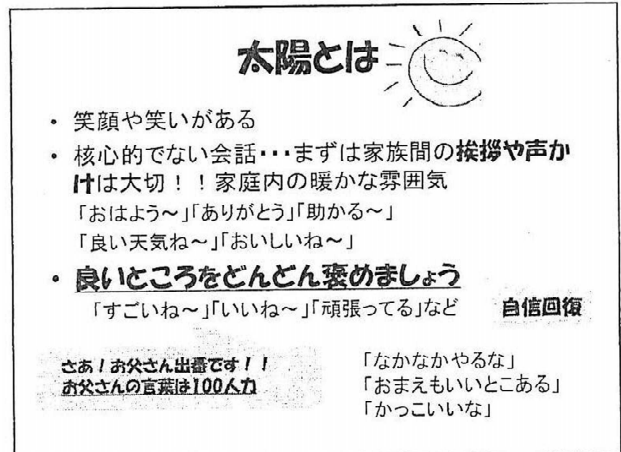 太陽とは
・ 笑顔や笑いがある
・ 核心的でない会話・・・まずは家族間の挨拶や声か
けは大切！！家庭内の暖かな雰囲気
「おはよう～」「ありがとう」「助かる～」
「良い天気ね～」「おいしいね～」
・ 良いところをどんどん褒めましょう
「すごいね～」「いいね～」「頑張ってる」など
自信回復
さあ！お父さん出番です！！
お父さんの言葉は100人力
「なかなかやるな」
「おまえもいいとこある」
「かっこいいな」